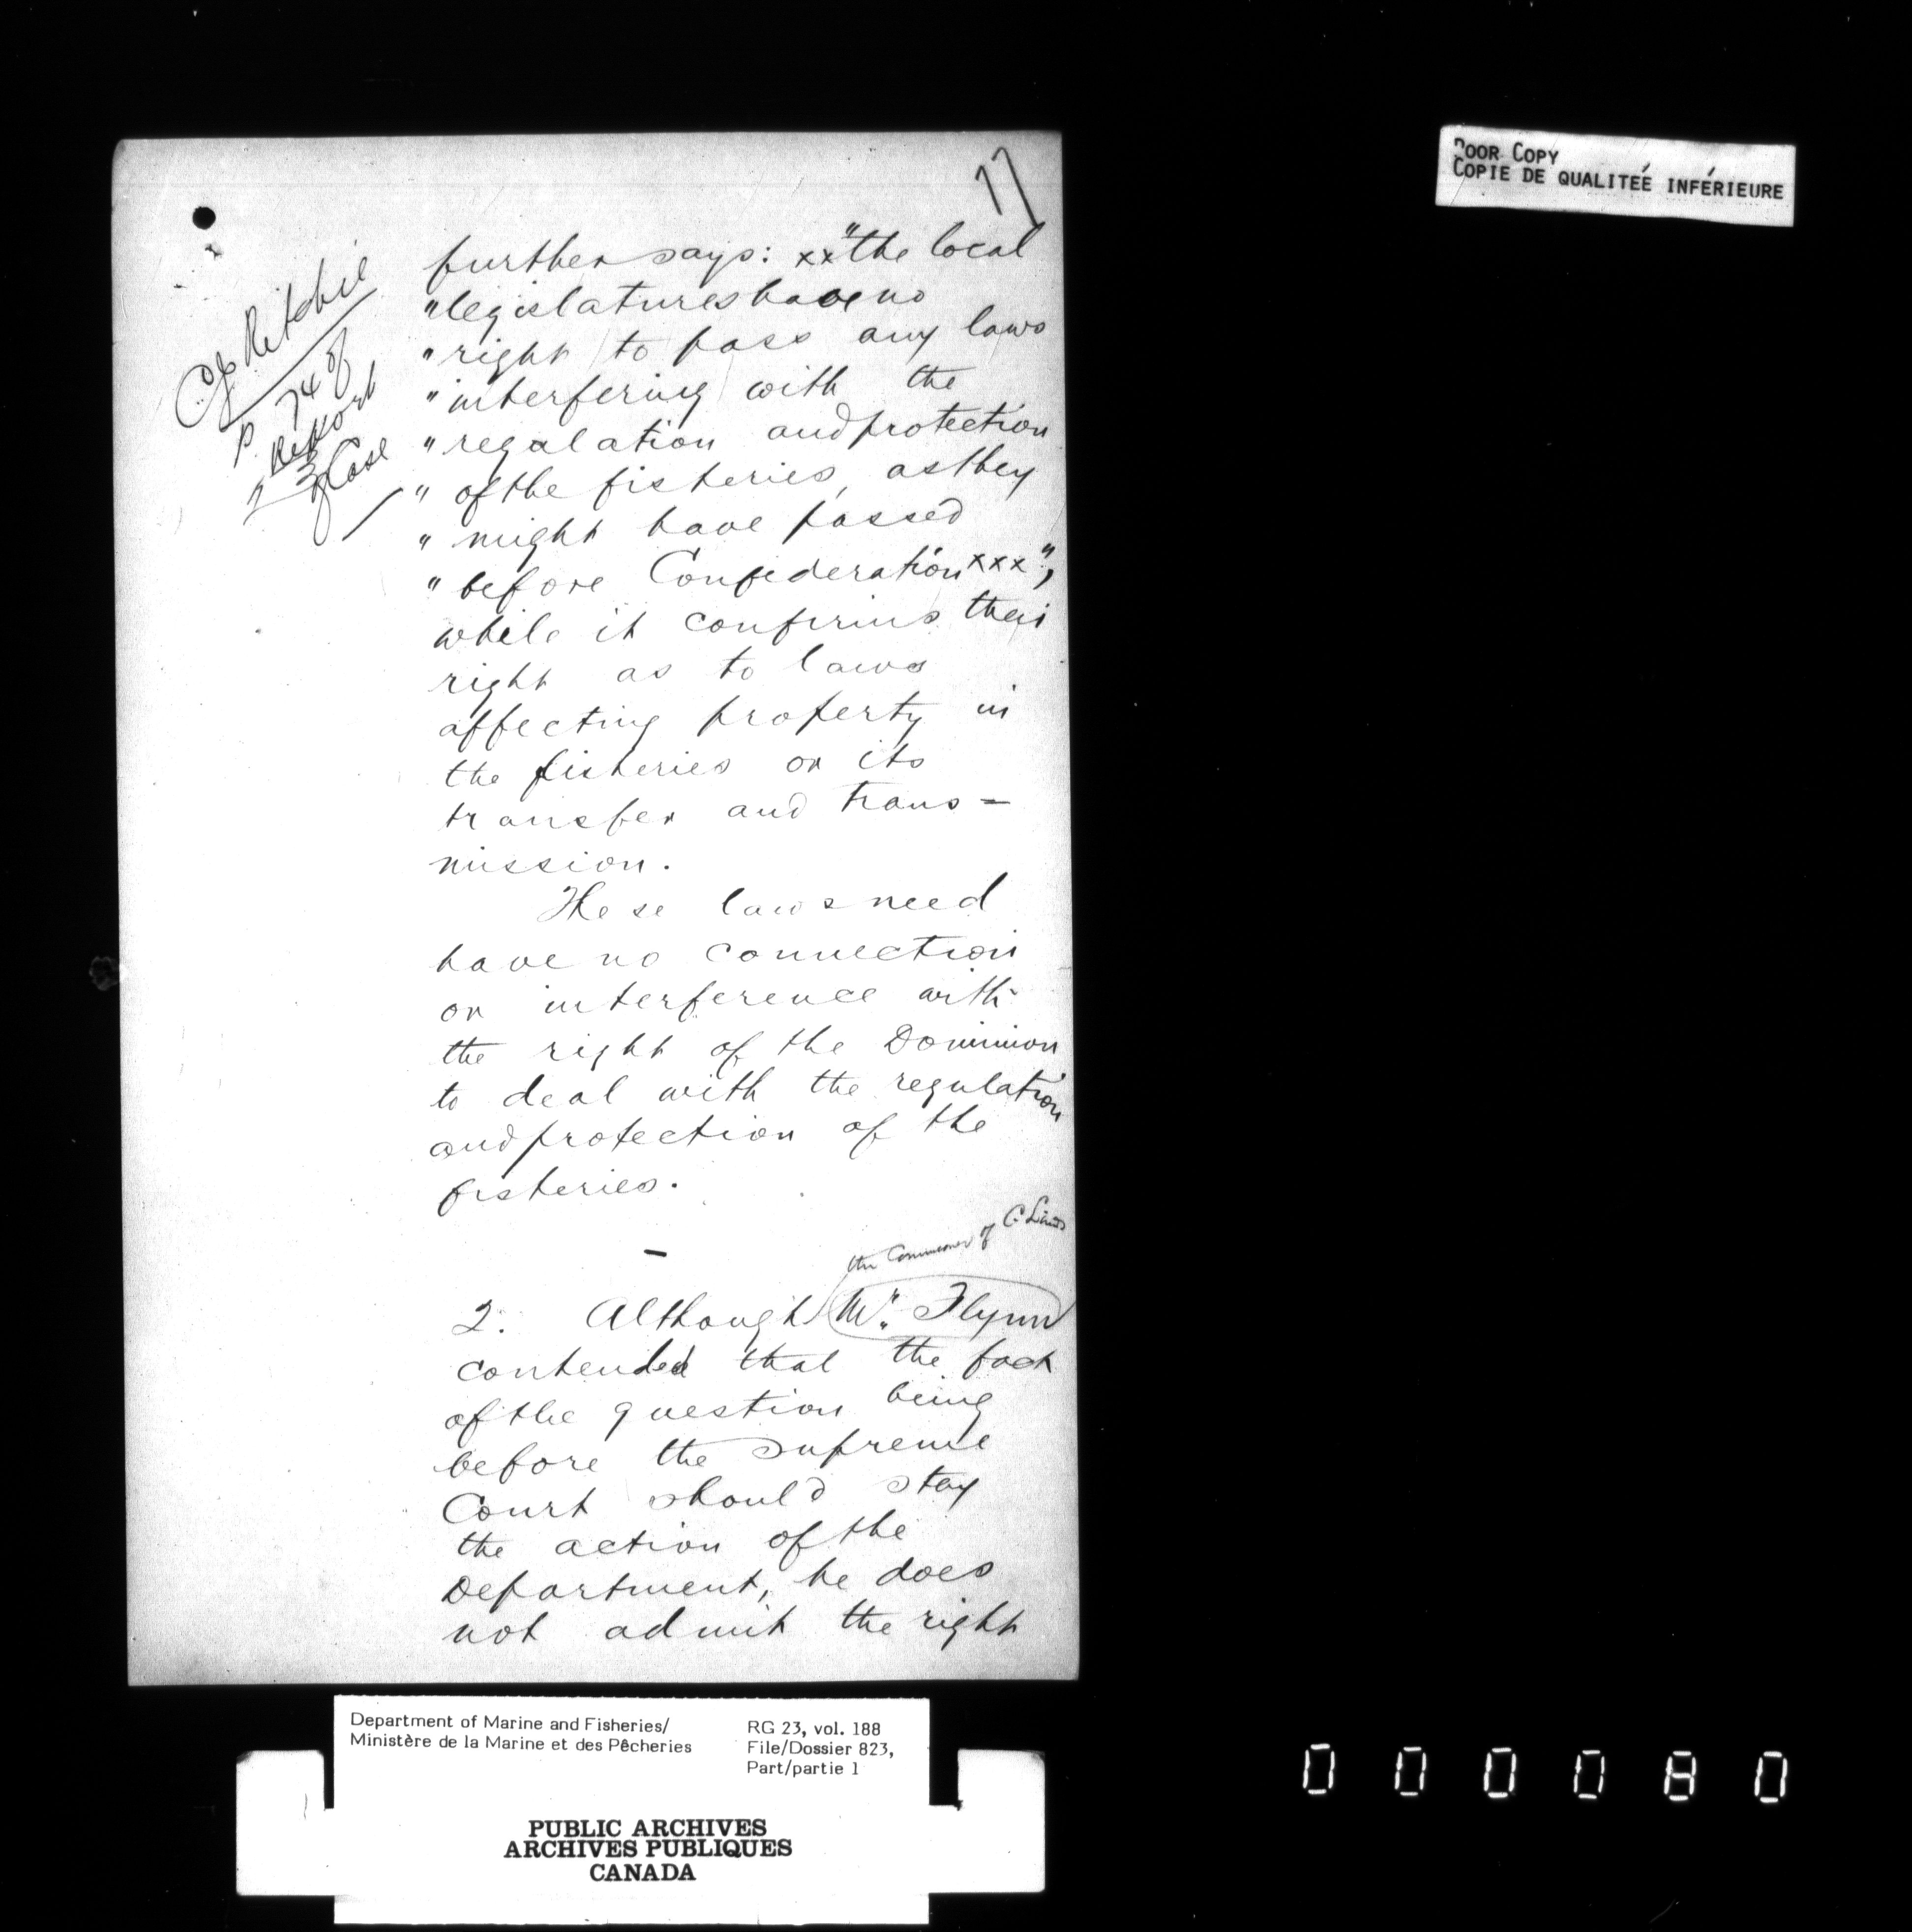 11
POOR COPY
COPIE DE QUALITEÉ INFÉRIEURE
C.J. Ritchie
P. 74 of
Report
of Case
further says: xx "the local
"legislatures have no
"right to pass any laws
"interfering with the
"regulation and protection
"of the fisheries, as they
"might have passed
"before Confederation xxx",
while it confirms their
right as to laws
affecting property in
the fisheries or its
transfer and trans=
mission.
These laws need
have no connection
or interference with
the right of the Dominion
to deal with the regulation
and protection of the
fisheries.
—
the Commioner of C. Lands
2. Although Mr. Flynn
contended that the fact
of the question being
before the Supreme
Court should stay
the action of the
Department, he does
not admit the right
Department of Marine and Fisheries/
Ministère de la Marine et des Pêcheries
RG 23, vol. 188
File/Dossier 823,
Part/partie 1
PUBLIC ARCHIVES
ARCHIVES PUBLIQUES
CANADA
000080